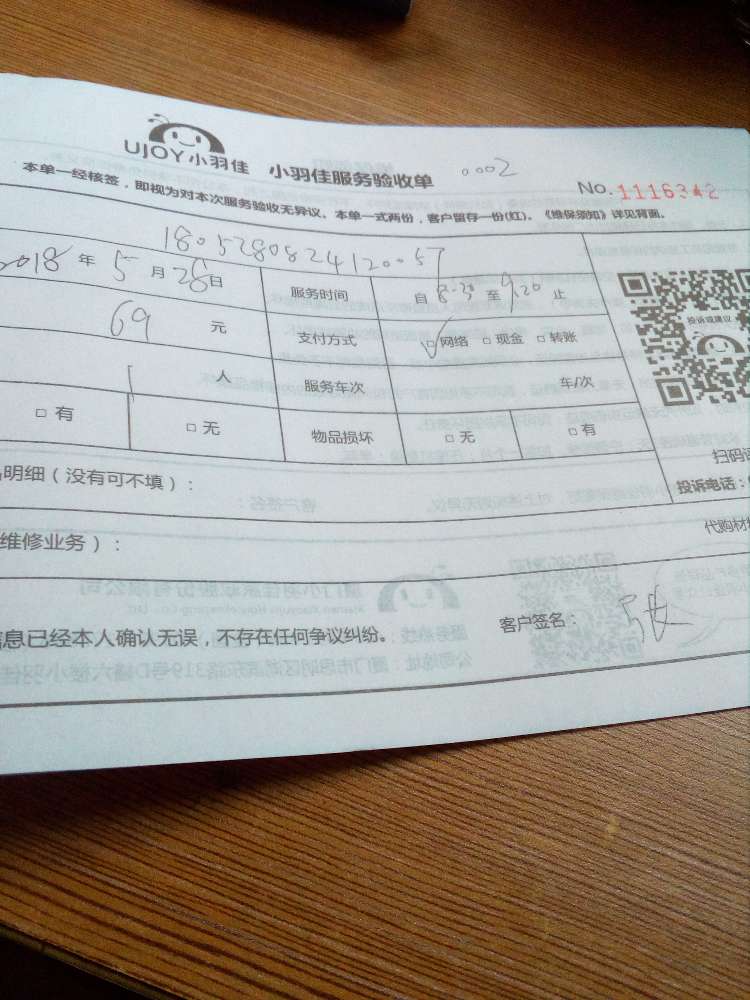 UJOY小羽佳 小羽佳服务验收单 0002
No.1116342
本单一经核签，即视为对本次服务验收无异议。本单一式两份，客户留存一份(红)。《维保须知》详见背面。
1805280824120057
2018 年 5 月 28 日 服务时间 自 8:20 至 9:20 止
69 元 支付方式 □网络 □现金 □转账
投诉或建议
1 人 服务车次 车/次
□有 □无 物品损坏 □无 □有
扫码
明细（没有可不填）：
投诉电话：
维修业务）： 代购材
信息已经本人确认无误，不存在任何争议纠纷。 客户签名： 张